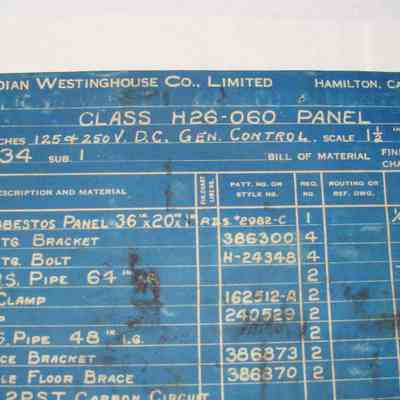 DIAN WESTINGHOUSE CO., LIMITED HAMILTON, CA
CLASS H26-060 PANEL
CHES 125 & 250 V. D.C. GEN. CONTROL. SCALE 1½ IN
34 SUB. 1 BILL OF MATERIAL FIN
CHA
ESCRIPTION AND MATERIAL FOR.CHART LINE NO. PATT. NO. OR STYLE NO. REQ. NO. ROUTING OR REF. DWG.
BESTOS PANEL 36 IN X 20 IN X 1 R.D.S. #2982-C 1
TG BRACKET 386300 4
TG. BOLT H-24348 4
.S. PIPE 64 IN 2
CLAMP 162512-A 2
P 240529 2
S. PIPE 48 IN LG. 2
CE BRACKET 386873 2
LE FLOOR BRACE 386870 2
2PST CARBON CIRCUIT